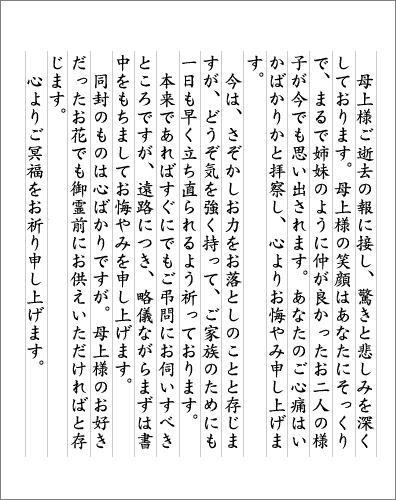 母上様ご逝去の報に接し、驚きと悲しみを深く
しております。母上様の笑顔はあなたにそっくり
で、まるで姉妹のように仲が良かったお二人の様
子が今でも思い出されます。あなたのご心痛はい
かばかりかと拝察し、心よりお悔やみ申し上げま
す。
今は、さぞかしお力をお落としのことと存じま
すが、どうぞ気を強く持って、ご家族のためにも
一日も早く立ち直られるよう祈っております。
本来であればすぐにでもご弔問にお伺いすべき
ところですが、遠路につき、略儀ながらまずは書
中をもちましてお悔やみを申し上げます。
同封のものは心ばかりですが。母上様のお好き
だったお花でも御霊前にお供えいただければと存
じます。
心よりご冥福をお祈り申し上げます。